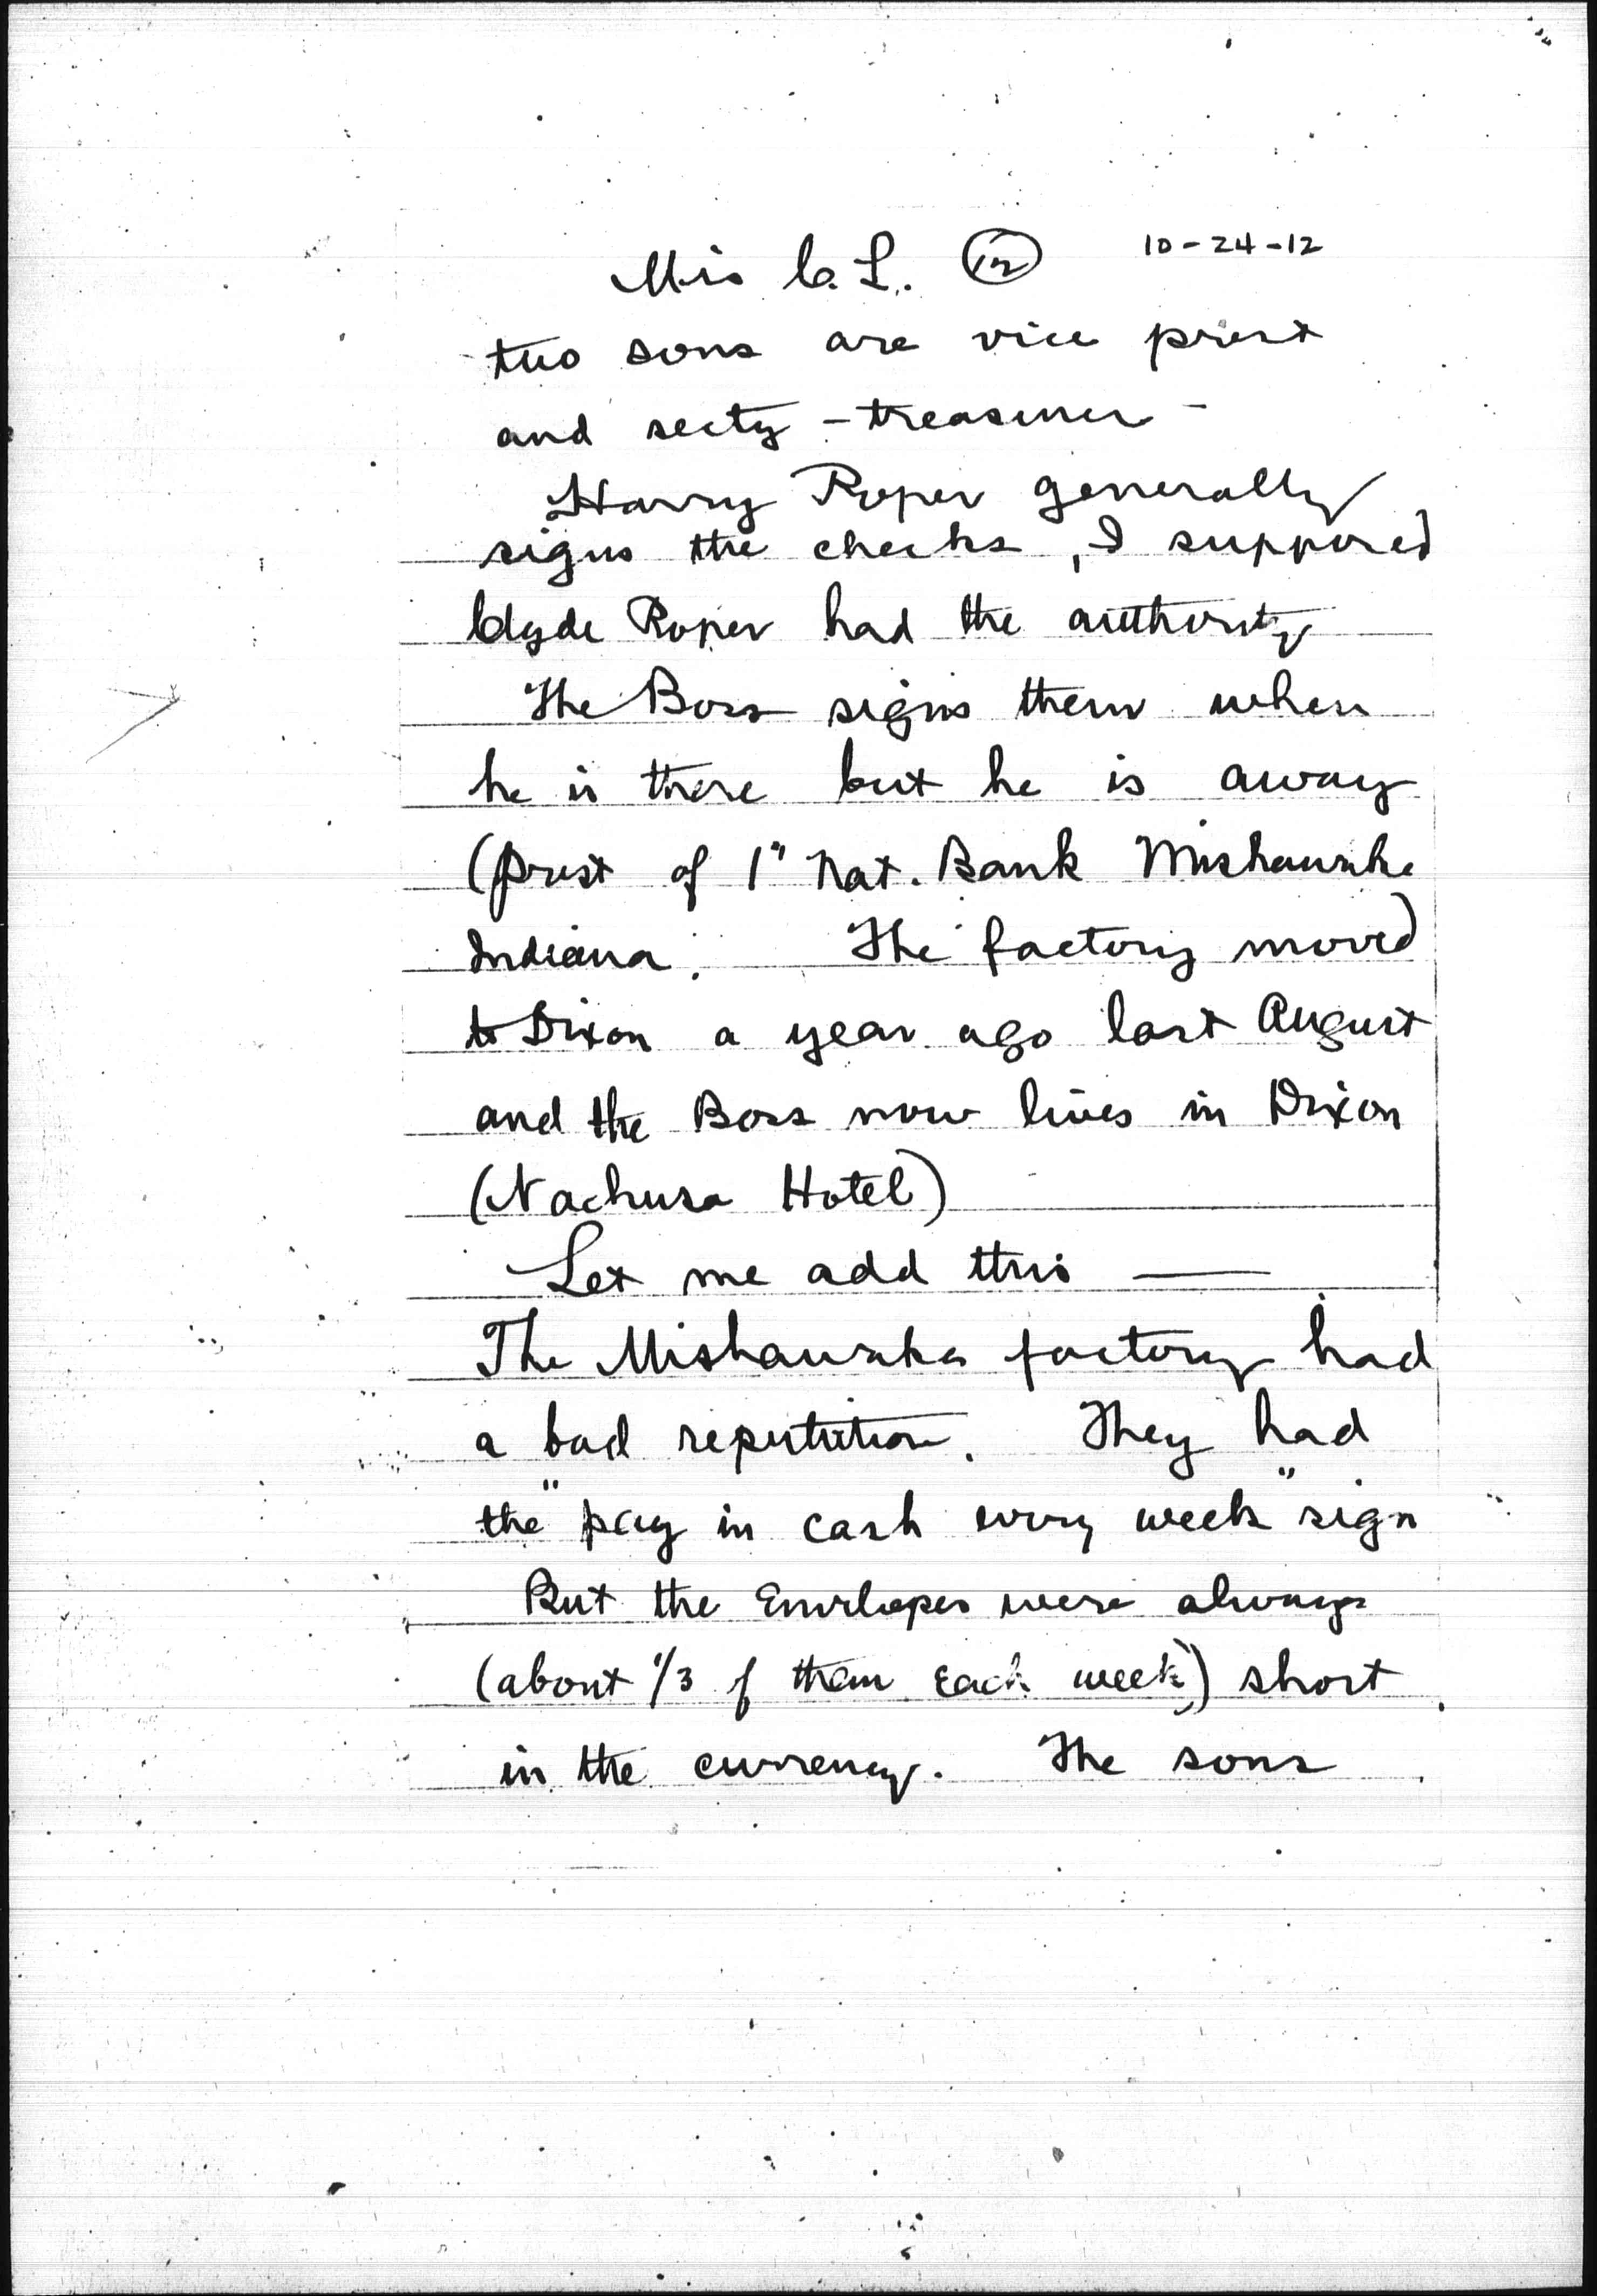 Mis C. L. 12 10-24-12
two sons are vice prest
and secty - treasurer -
Harry Roper generally
signs the checks, I supposed
Clyde Roper had the authority
The Boss signs them when
he is there but he is away
(prest of 1" Nat. Bank Mishawaka
Indiana. The factory moved
to Dixon a year ago last August
and the Boss now lives in Dixon
(Nachusa Hotel)
Let me add this —
The Mishawaka factory had
a bad reputation. They had
the "pay in cash every week" sign
But the Envelopes were always
(about 1/3 of them each week) short
in the currency. The sons